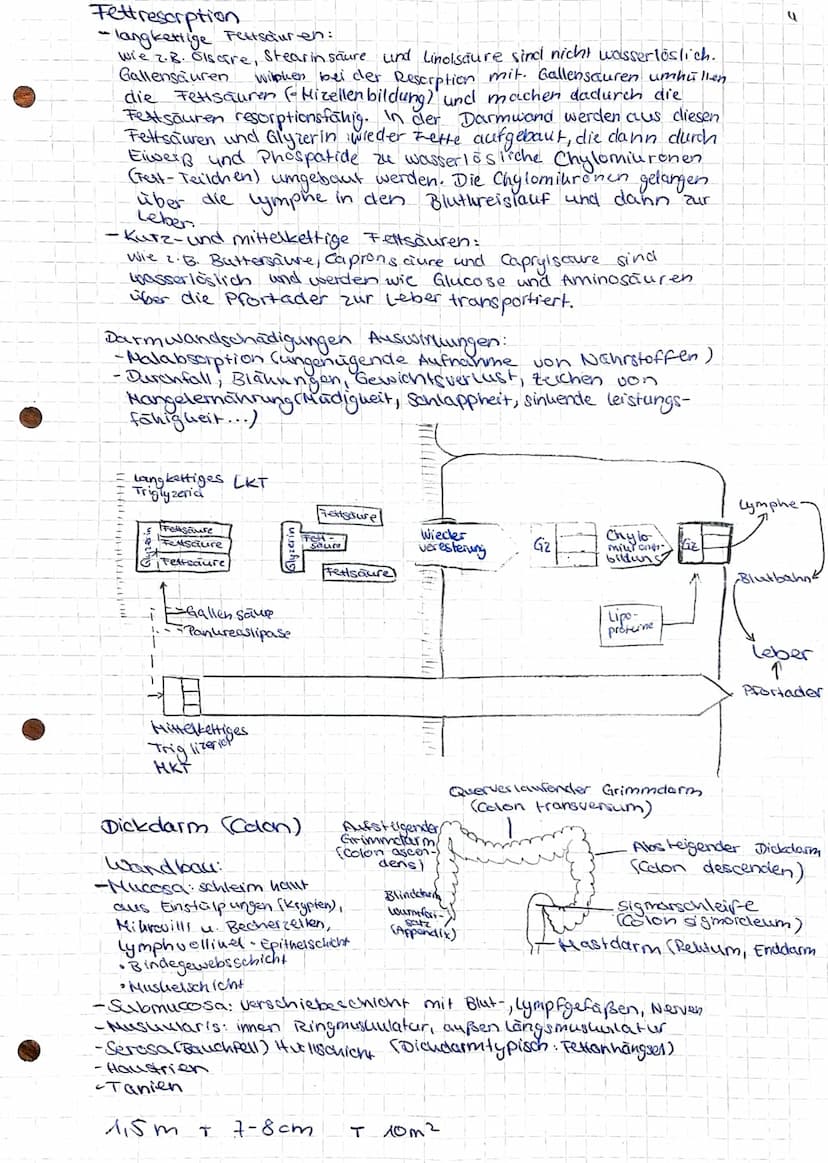 Fettresorption
4
- langkettige Fettsäuren:
wie z.B. Ölsäure, Stearinsäure und Linolsäure sind nicht wasserlöslich.
Gallensäuren wirken bei der Resorption mit. Gallensäuren umhüllen
die Fettsäuren (= Mizellenbildung) und machen dadurch die
Fettsäuren resorptionsfähig. In der Darmwand werden aus diesen
Fettsäuren und Glyzerin wieder Fette aufgebaut, die dann durch
Eiweiß und Phospatide zu wasserlösliche Chylomikronen
(Fett-Teilchen) umgebaut werden. Die Chylomikronen gelangen
über die Lymphe in den Blutkreislauf und dahn zur
Leber.
- Kurz- und mittelkettige Fettsäuren:
wie z.B. Buttersäure, Capronsäure und Caprylsäure sind
wasserlöslich und werden wie Glucose und Aminosäuren
über die Pfortader zur Leber transportiert.
Darmwandschädigungen Auswirkungen:
- Malabsorption (ungenügende Aufnahme von Nährstoffen)
- Durchfall, Blähungen, Gewichtsverlust, Zeichen von
Mangelernährung (Müdigkeit, Schlappheit, sinkende Leistungs-
fähigkeit...)
Langkettiges LKT
Triglyzerid
Glyzerin
Fettsäure
Fettsäure
Fettsäure
Glyzerin
Fettsäure
Fett-
säure
Fettsäure
Wieder
veresterung
Gz
Chylo-
mikronen
bildung
Gz
Lymphe
Blutbahn
Lipo-
proteine
Leber
Pfortader
Gallensäure
Pankreaslipase
Mittelkettiges
Triglizerid
MKT
Dickdarm (Colon)
Querverlaufender Grimmdarm
(Colon transversum)
Aufsteigender
Grimmdarm
(Colon ascen-
dens)
Absteigender Dickdarm
(Colon descenden)
Blinddarm
Wurmfort-
satz
(Appendix)
Sigmarschleife
(Colon sigmoideum)
Mastdarm (Rektum, Enddarm
Wandbau:
- Mucosa: schleimhaut
aus Einstülpungen (Krypten),
Mikrovilli u. Becherzellen,
Lymphvollikel - Epithelschicht
• Bindegewebsschicht
• Muskelschicht
- Submucosa: Verschiebeschicht mit Blut-, Lympfgefäßen, Nerven
- Muskularis: innen Ringmuskulatur, außen Längsmuskulatur
- Serosa (Bauchfell) Hüllschicht (Dickdarmtypisch: Fettanhängsel)
- Haustrien
- Tanien
1,5m T 7-8cm T 10m²